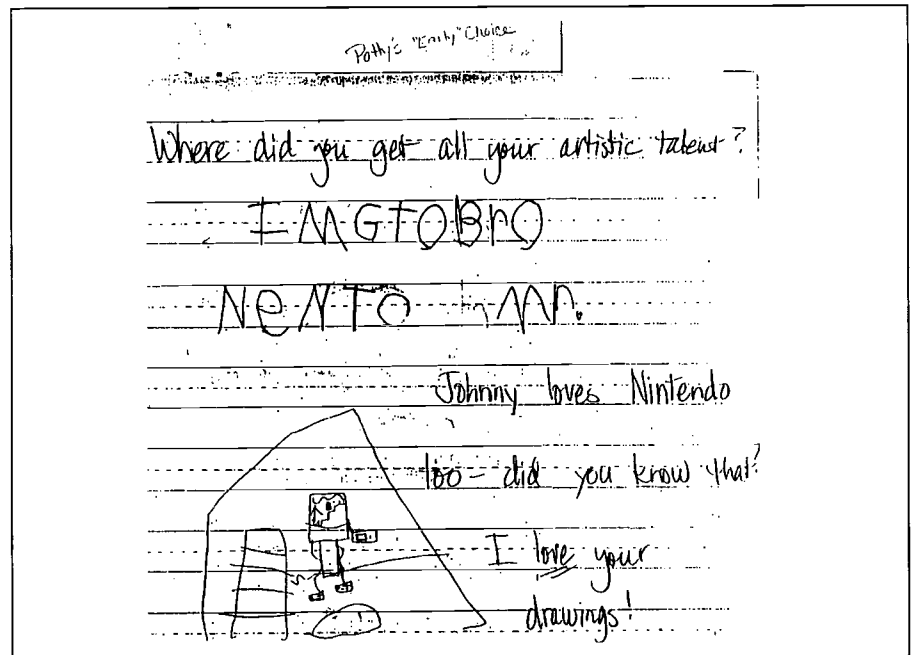 Pathy's "Emily" Choice
Where did you get all your artistic talent?
I M G T O B r O
N e N T O
Johnny loves Nintendo
too - did you know that?
I love your
drawings!